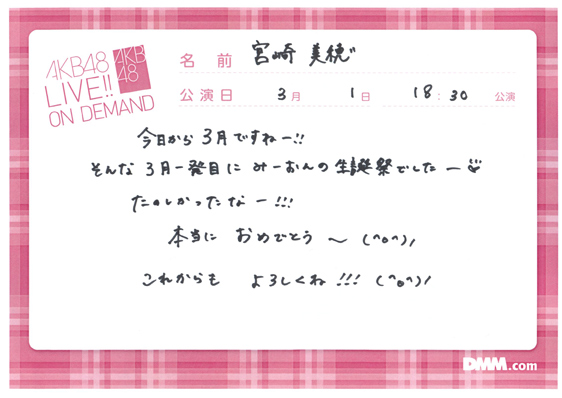 AKB48
LIVE!!
ON DEMAND
AKB
48
名前 宮崎 美穂
公演日 3月 1日 18:30 公演
今日から 3月ですねー!!
そんな 3月一発目に みーおんの生誕祭でしたー
たのしかったなー!!!
本当に おめでとう 〜 (^o^)/
これからも よろしくね !!! (^o^)/
DMM.com